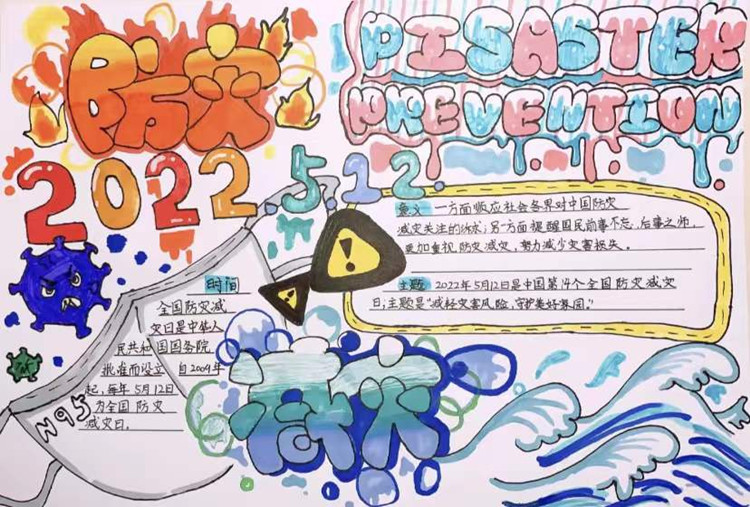 防灾
DISASTER
PREVENTION
2022.5.12
意义 一方面顺应社会各界对中国防灾
减灾关注的诉求;另一方面提醒国民前事不忘,后事之师,
更加重视防灾减灾,努力减少灾害损失。
主题 2022年5月12日是中国第14个全国防灾减灾
日;主题是“减轻灾害风险,守护美好家园。”
时间
全国防灾减
灾日是中华人
民共和国国务院
批准而设立 自2009年
起,每年5月12日
为全国防灾
减灾日。
N95
减灾